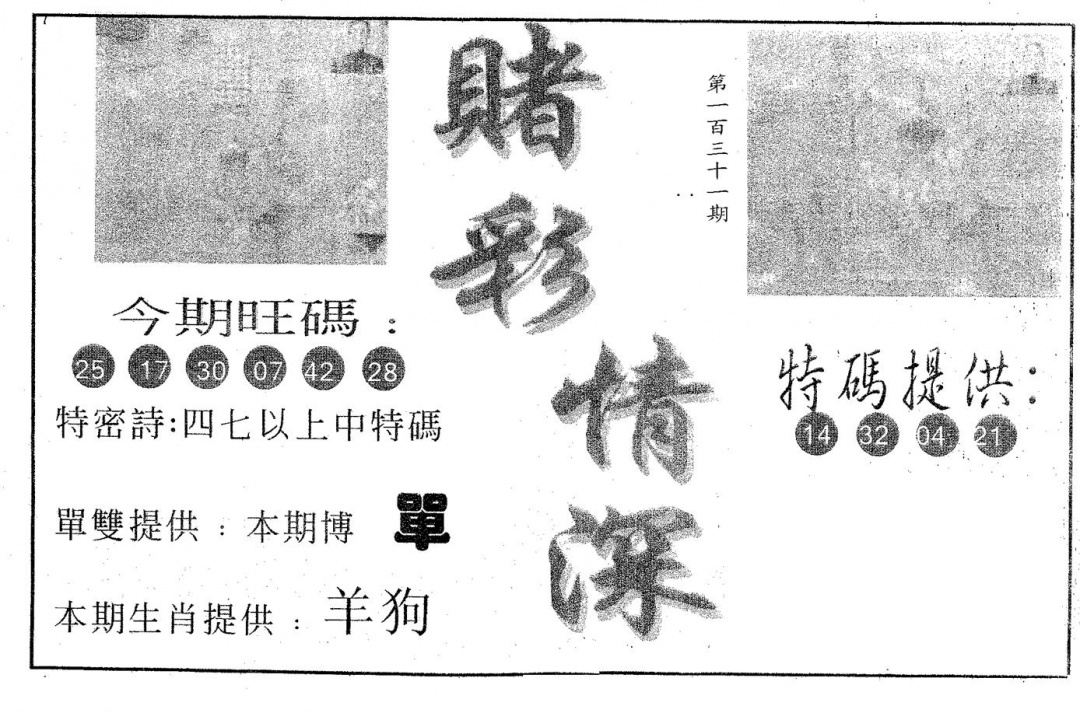 賭彩情深
第一百三十一期
今期旺碼：
25 17 30 07 42 28
特密詩:四七以上中特碼
單雙提供：本期博 單
本期生肖提供：羊狗
特碼提供：
14 32 04 21